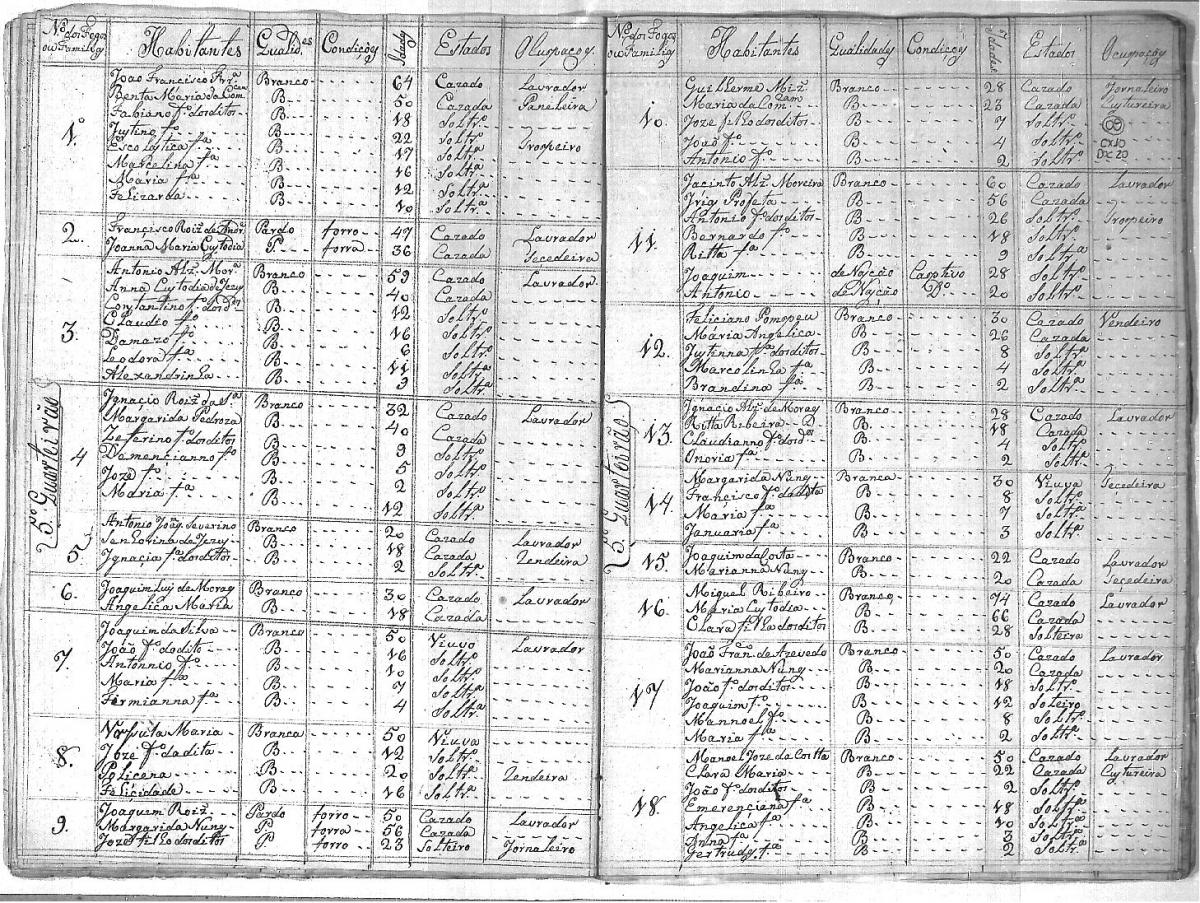 Nos. dos Fogos ou Familias Habitantes Qualides. Condições Idades Estados Ocupações
1.º João Francisco Frra. Branco 64 Cazado Lavrador
Benta Maria da Comcam. B 50 Cazada Paneleira
Fabiano fº. dos ditos B 18 Soltrº.
Justino fº. B 22 Soltrº. Tropeiro
Escolastica fa. B 17 Soltra.
Marcelina fa. B 16 Soltra.
Maria fa. B 12 Soltra.
Felizarda B 10 Soltra.
2. Francisco Roiz de Pardo forro 47 Cazado Lavrador
Joanna Maria Custodia P. forra 36 Cazada Tecedeira
3. Antonio Alz. Morª. Branco 59 Cazado Lavrador
Anna Custodia de Jezus B 40 Cazada
Constantino fº. dos Dos. B 12 Soltrº.
Claudio fº. B 16 Soltrº.
Damazo fº. B 6 Soltrº.
Leodora fa. B 11 Soltra.
Alexandrinha B 9 Soltra.
5º Quarteirão
4 Ignacio Roiz da Sª. Branco 32 Cazado Lavrador
Margarida Pedroza B 40 Cazada
Zeferino fº. dos ditos B 9 Soltrº.
Demencianno fº. B 5 Soltrº.
Joze fº. B 2 Soltrº.
Maria fa. B 12 Soltra.
5. Antonio João Severino Branco 20 Cazado Lavrador
Senhorina de Jezus B 18 Cazada Rendeira
Ignacia fa. dos ditos B 2 Soltra.
6. Joaquim Luis de Moraes Branco 30 Cazado Lavrador
Angelica Maria B 18 Cazada
7. Joaquim da Silva Branco 50 Viuvo Lavrador
João fº. do dito B 16 Soltrº.
Antonnio fº. B 10 Soltrº.
Maria fa. B 7 Soltra.
Fermianna fa. B 4 Soltra.
8. Vorsula Maria Branca 50 Viuva
Joze fº. da dita B 12 Soltrº.
Policena B 20 Soltra. Rendeira
Felicidade B 16 Soltra.
9. Joaquim Roiz Pardo forro 50 Cazado Lavrador
Margarida Nunes P. forra 56 Cazada
Joze filho dos ditos P forro 23 Solteiro Jornaleiro
Nos. dos Fogos ou Familias Habitantes Qualidades Condições Idades Estados Ocupações
10. Guilherme Miz. Branco 28 Cazado Jornaleiro
Maria da Comcam. B 23 Cazada Custureira
Joze filho dos ditos B 7 Soltrº.
João fº. B 4 Soltrº.
Antonio fº. B 2 Soltrº.
CX10
DOC 20
11. Jacinto Alz. Moreira Branco 60 Cazado Lavrador
Iria Profeta B 56 Cazada
Antonio fº. dos ditos B 26 Soltrº. Tropeiro
Bernardo fº. B 18 Soltrº.
Ritta fa. B 9 Soltra.
Joaquim de Nasção Captivo 28 Soltrº.
Antonio de Nasção Dº. 20 Soltrº.
12. Feliciano Pompeu Branco 30 Cazado Vendeiro
Maria Angelica B 26 Cazada
Justinna fa. dos ditos B 8 Soltra.
Marcolinha fa. B 4 Soltra.
Brandina fa. B 2 Soltra.
5º Quarteirão
13. Ignacio Alz. de Moraes Branco 28 Cazado Lavrador
Ritta Ribeira B 18 Cazada
Claudianno fº. dos Dos. B 4 Soltrº.
Onoria fa. B 2 Soltra.
14. Margarida Nunes Branca 30 Viuva Tecedeira
Francisco fº. da dita B 8 Soltrº.
Maria fa. B 7 Soltra.
Januaria fa. B 3 Soltra.
15. Joaquim da Costa Branco 22 Cazado Lavrador
Marianna Nunes B 20 Cazada Tecedeira
16. Miguel Ribeiro Branco 74 Cazado Lavrador
Maria Custodia B 66 Cazada
Clara filha dos ditos B 28 Solteira
17 João Fran. de Azevedo Branco 50 Cazado Lavrador
Marianna Nunes B 20 Cazada
João fº. dos ditos B 18 Soltrº.
Joaquim fº. B 12 Soleiro
Mannoel fº. B 8 Soltrº.
Maria fa. B 2 Soltra.
18. Manoel Joze da Costta Branco 50 Cazado Lavrador
Clara Maria B 22 Cazada Custureira
João fº. dos ditos B 2 Soltrº.
Emerenciana fa. B 18 Soltra.
Angelica fa. B 10 Soltra.
Anna fa. B 3 Soltra.
Gertrudes fa. B 2 Soltra.